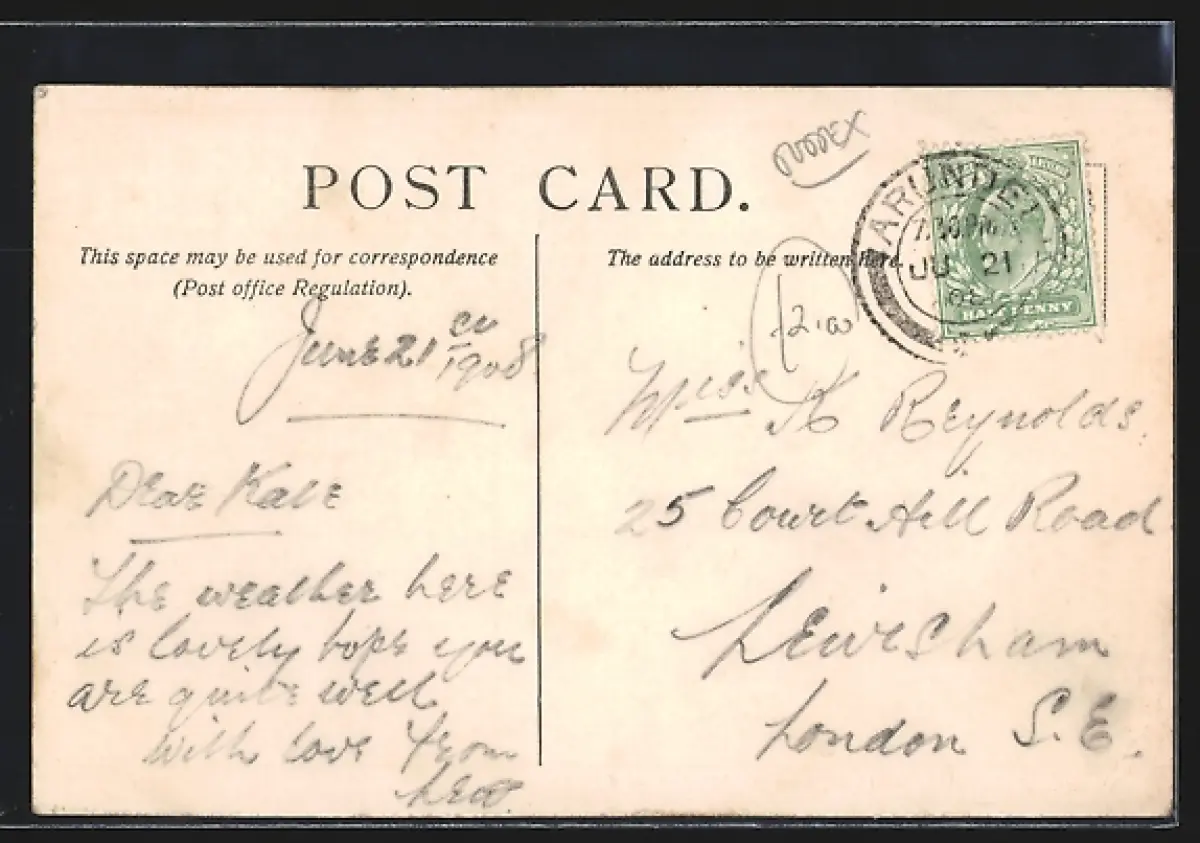 SUSSEX
POST CARD.
This space may be used for correspondence
(Post office Regulation).
The address to be written here.
ARUNDEL
7.30PM
JU 21
08
HALFPENNY
£2.00
June 21st
1908
Dear Kate
The weather here
is lovely hope you
are quite well
with love from
Miss K Reynolds
25 Court Hill Road
Lewisham
London S.E.